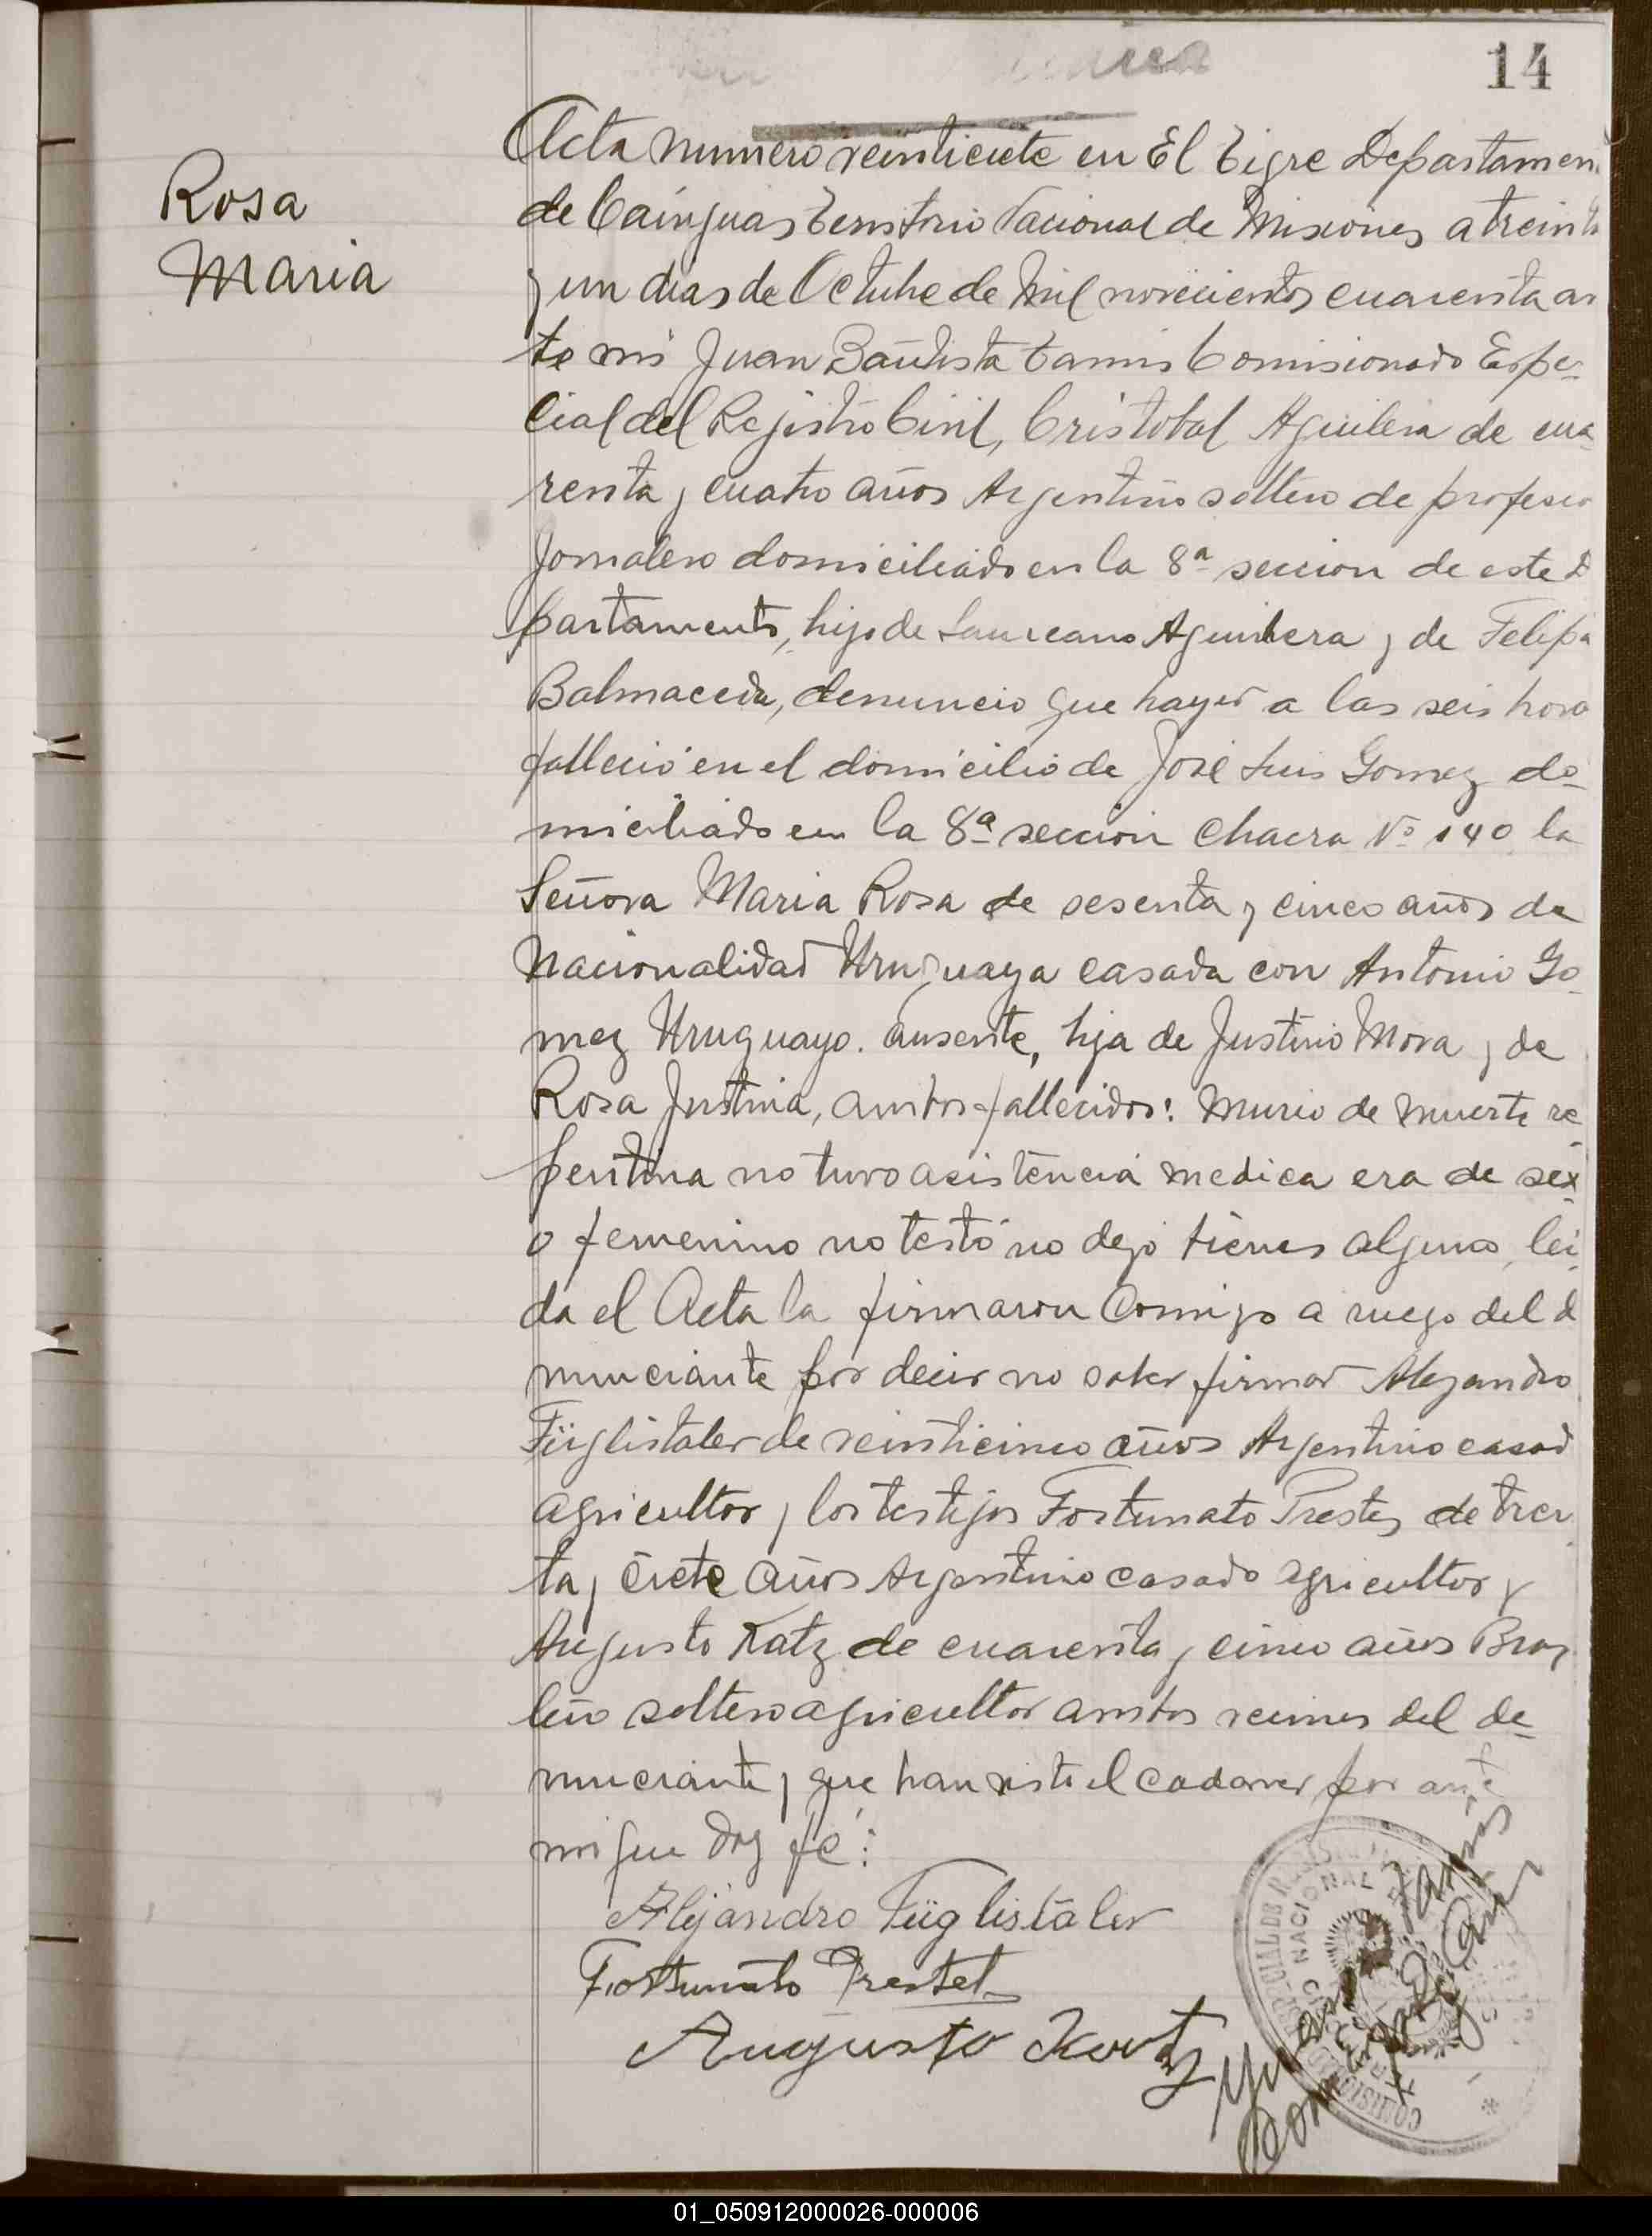 14
Rosa
Maria
Acta numero veinticiete en El Tigre Departamen
de Cainguas Territorio Nacional de Misiones a treinta
y un dias de Octubre de Mil novecientos cuarenta an
te mi Juan Bautista Tamis Comisionado Espe-
cial del Registro Civil, Cristobal Aguilera de cua-
renta y cuatro años Argentino soltero de profesio
Jornalero domiciliado en la 8ª seccion de este D
partamento, hijo de Laureano Aguilera y de Felipa
Balmaceda, denuncio que hayer a las seis hora
fallecio en el domicilio de José Luis Gomez do-
miciliado en la 8ª seccion Chacra Nº 140 la
Señora Maria Rosa de sesenta y cinco años de
Nacionalidad Uruguaya casada con Antonio Go-
mez Uruguayo. ausente, hija de Justino Mora y de
Rosa Justina, ambos fallecidos: Murio de muerte re-
pentina no tuvo asistencia medica era de sex-
o femenino no testó no dejó bienes alguno, lei-
da el Acta la firmaron Comigo a ruego del d
nunciante por decir no saber firmar Alejandro
Füglistaler de veinticinco años Argentino casad
agricultor y los testijos Fortunato Prestes de trein
ta y ciete años Argentino casado agricultor y
Augusto Katz de cuarenta y cinco años Bras
leño soltero agricultor ambos vecinos del de-
nunciante y que han visto el cadaver por ante
mi que doy fé:
Alejandro Füglistaler
Fortunato Prestet
Augusto Kartz
Juan B. Tamis
01_050912000026-000006